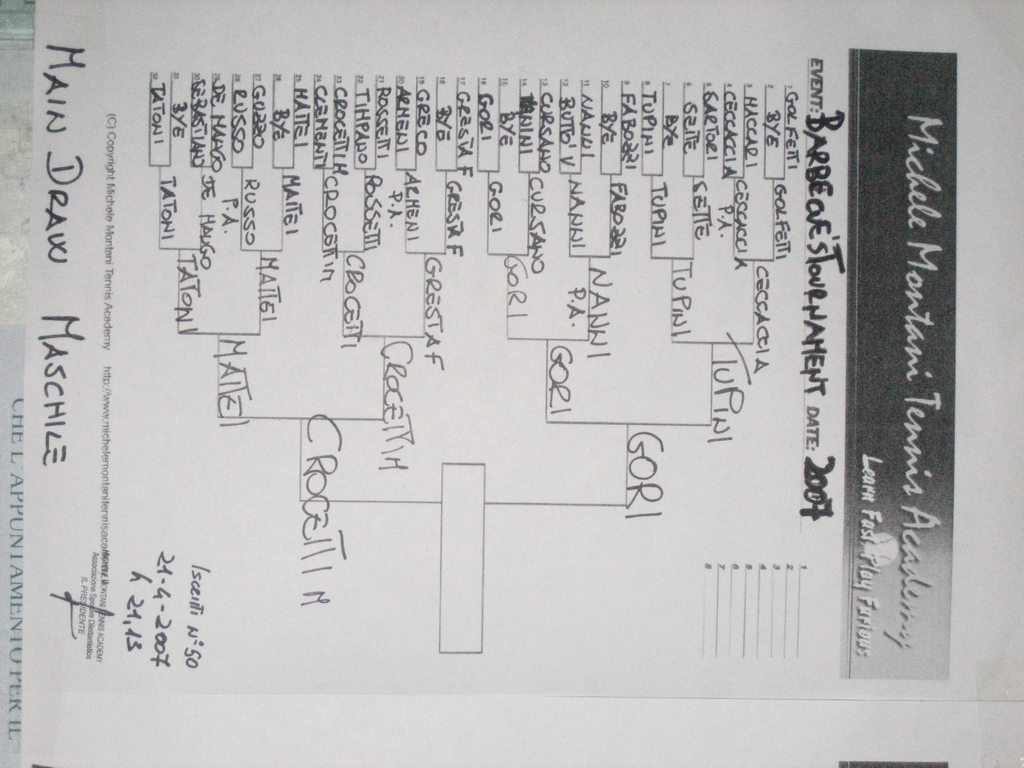 Michele Montani Tennis Academy
Learn Fast, Play Furious
EVENT: BARBECUE'S TOURNAMENT DATE: 2007
1 GOLFETTI
2 BYE
3 MACCARI
4 CECCACCIA
5 SARTORI
6 SETTE
7 BYE
8 TUPINI
9 FABOZZI
10 BYE
11 NANNI
12 BUTTO' V
13 CURSANO
14 MANINI
15 BYE
16 GORI
17 GRESTA F
18 BYE
19 GRECO
20 ARMENI
21 ROSSETTI
22 TIMPANO
23 CROCETTI M
24 CLEMENTI
25 MATTEI
26 BYE
27 GUZZO
28 RUSSO
29 DE MANGO
30 SEBASTIANO
31 BYE
32 TATONI
GOLFETTI
CECCACCIA
P.A.
SETTE
TUPINI
FABOZZI
NANNI
CURSANO
GORI
GRESTA F
ARMENI
P.A.
ROSSETTI
CROCETTI M
MATTEI
RUSSO
P.A.
DE MANGO
TATONI
CECCACCIA
TUPINI
NANNI
P.A.
GORI
GRESTA F
CROCETTI
MATTEI
TATONI
TUPINI
GORI
CROCETTI M
MATTEI
GORI
CROCETTI M
1
2
3
4
5
6
7
8
Iscritti N° 50
21-4-2007
h 21,13
(C) Copyright Michele Montani Tennis Academy http://www.michelemontanitennisacademy
MICHELE MONTANI TENNIS ACADEMY
Associazione Sportiva Dilettantistica
IL PRESIDENTE
MAIN DRAW MASCHILE
CHE L'APPUNTAMENTO PER IL